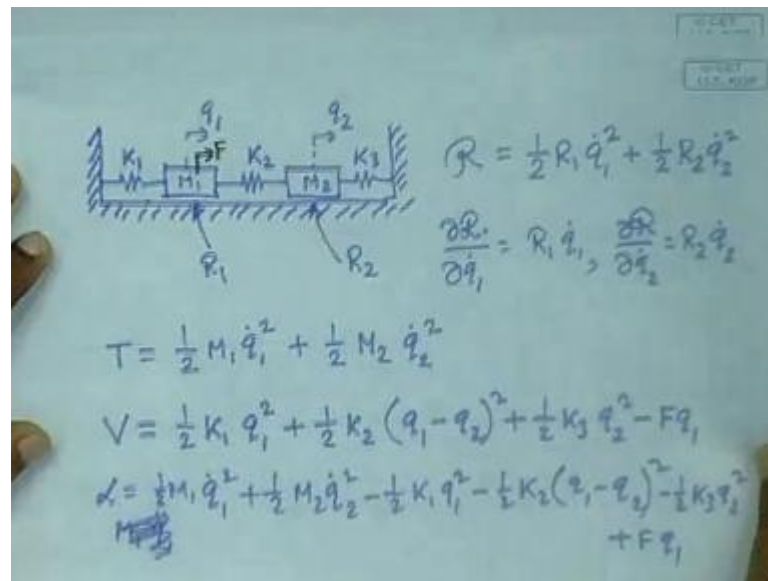 q₁ q₂
F
K₁ K₂ K₃
M₁ M₂
R₁ R₂
ℛ = ½ R₁ q̇₁² + ½ R₂ q̇₂²
∂ℛ/∂q̇₁ = R₁ q̇₁, ∂ℛ/∂q̇₂ = R₂ q̇₂
T = ½ M₁ q̇₁² + ½ M₂ q̇₂²
V = ½ K₁ q₁² + ½ K₂ (q₁ - q₂)² + ½ K₃ q₂² - Fq₁
ℒ = ½ M₁ q̇₁² + ½ M₂ q̇₂² - ½ K₁ q₁² - ½ K₂ (q₁ - q₂)² - ½ K₃ q₂²
+ F q₁